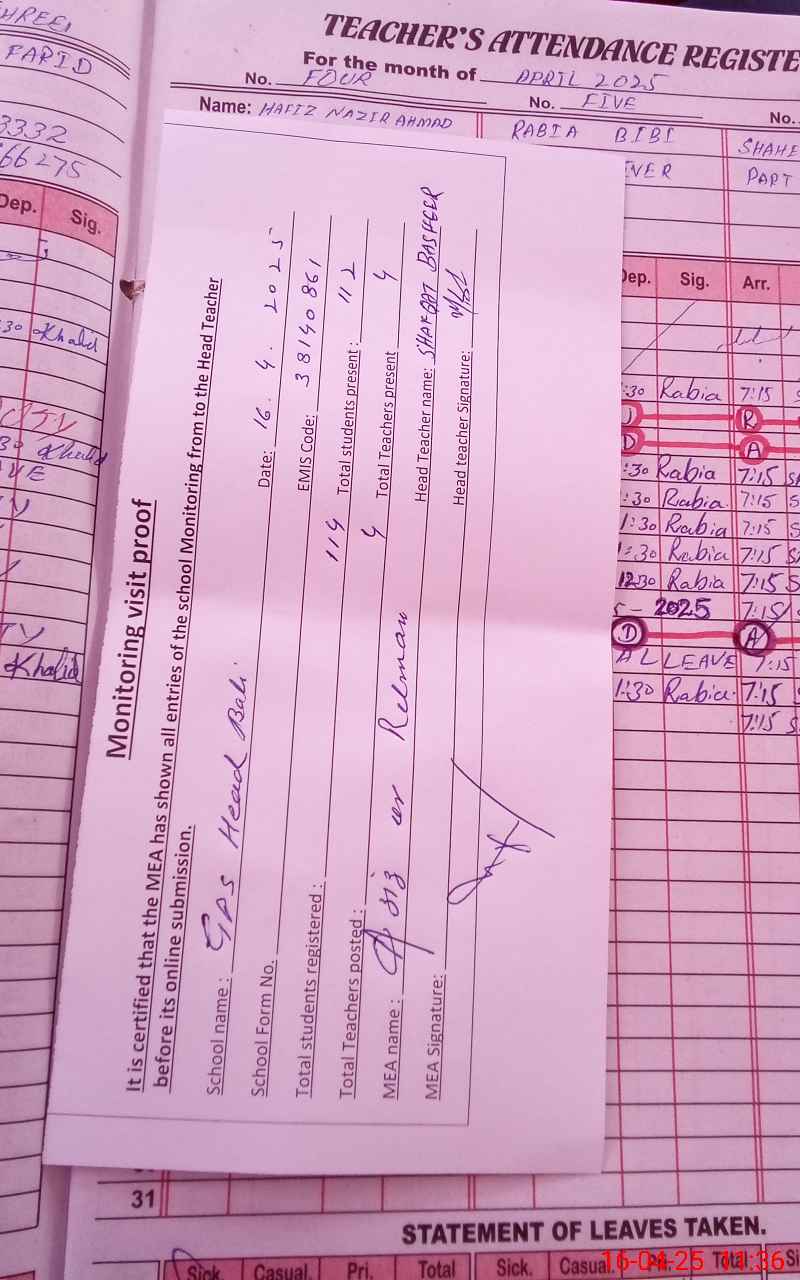 HREEI
FARID
3332
66275
Dep. Sig.
:30 Khalid
30 Khalid
VE
TY
Khalid
TEACHER'S ATTENDANCE REGISTE
For the month of APRIL 2025
No. FOUR No. FIVE No.
Name: HAFIZ NAZIR AHMAD RABIA BIBI SHAHE
IVER PART
Dep. Sig. Arr.
:30 Rabia 7:15 S
J R
D A
1:30 Rabia 7:15 SA
1:30 Rabia. 7:15 S
1:30 Rabia 7:15 S
1:30 Rabia 7:15 SA
12:30 Rabia 7:15 S
5-2025 7:15
D A
AL LEAVE 7:15
1:30 Rabia. 7:15 S
7:15 S
Monitoring visit proof
It is certified that the MEA has shown all entries of the school Monitoring from to the Head Teacher
before its online submission.
School name : GPS Head Bali Date: 16. 4. 2025
School Form No. EMIS Code: 38140861
Total students registered : 114 Total students present : 112
Total Teachers posted : 4 Total Teachers present 4
MEA name : Aziz ur Rehman Head Teacher name: SHAFQAT BASHEER
MEA Signature: Head teacher Signature:
31
STATEMENT OF LEAVES TAKEN.
Sick Casual. Pri. Total Sick. Casual. Pri. Total Si
16-04-25 11:36